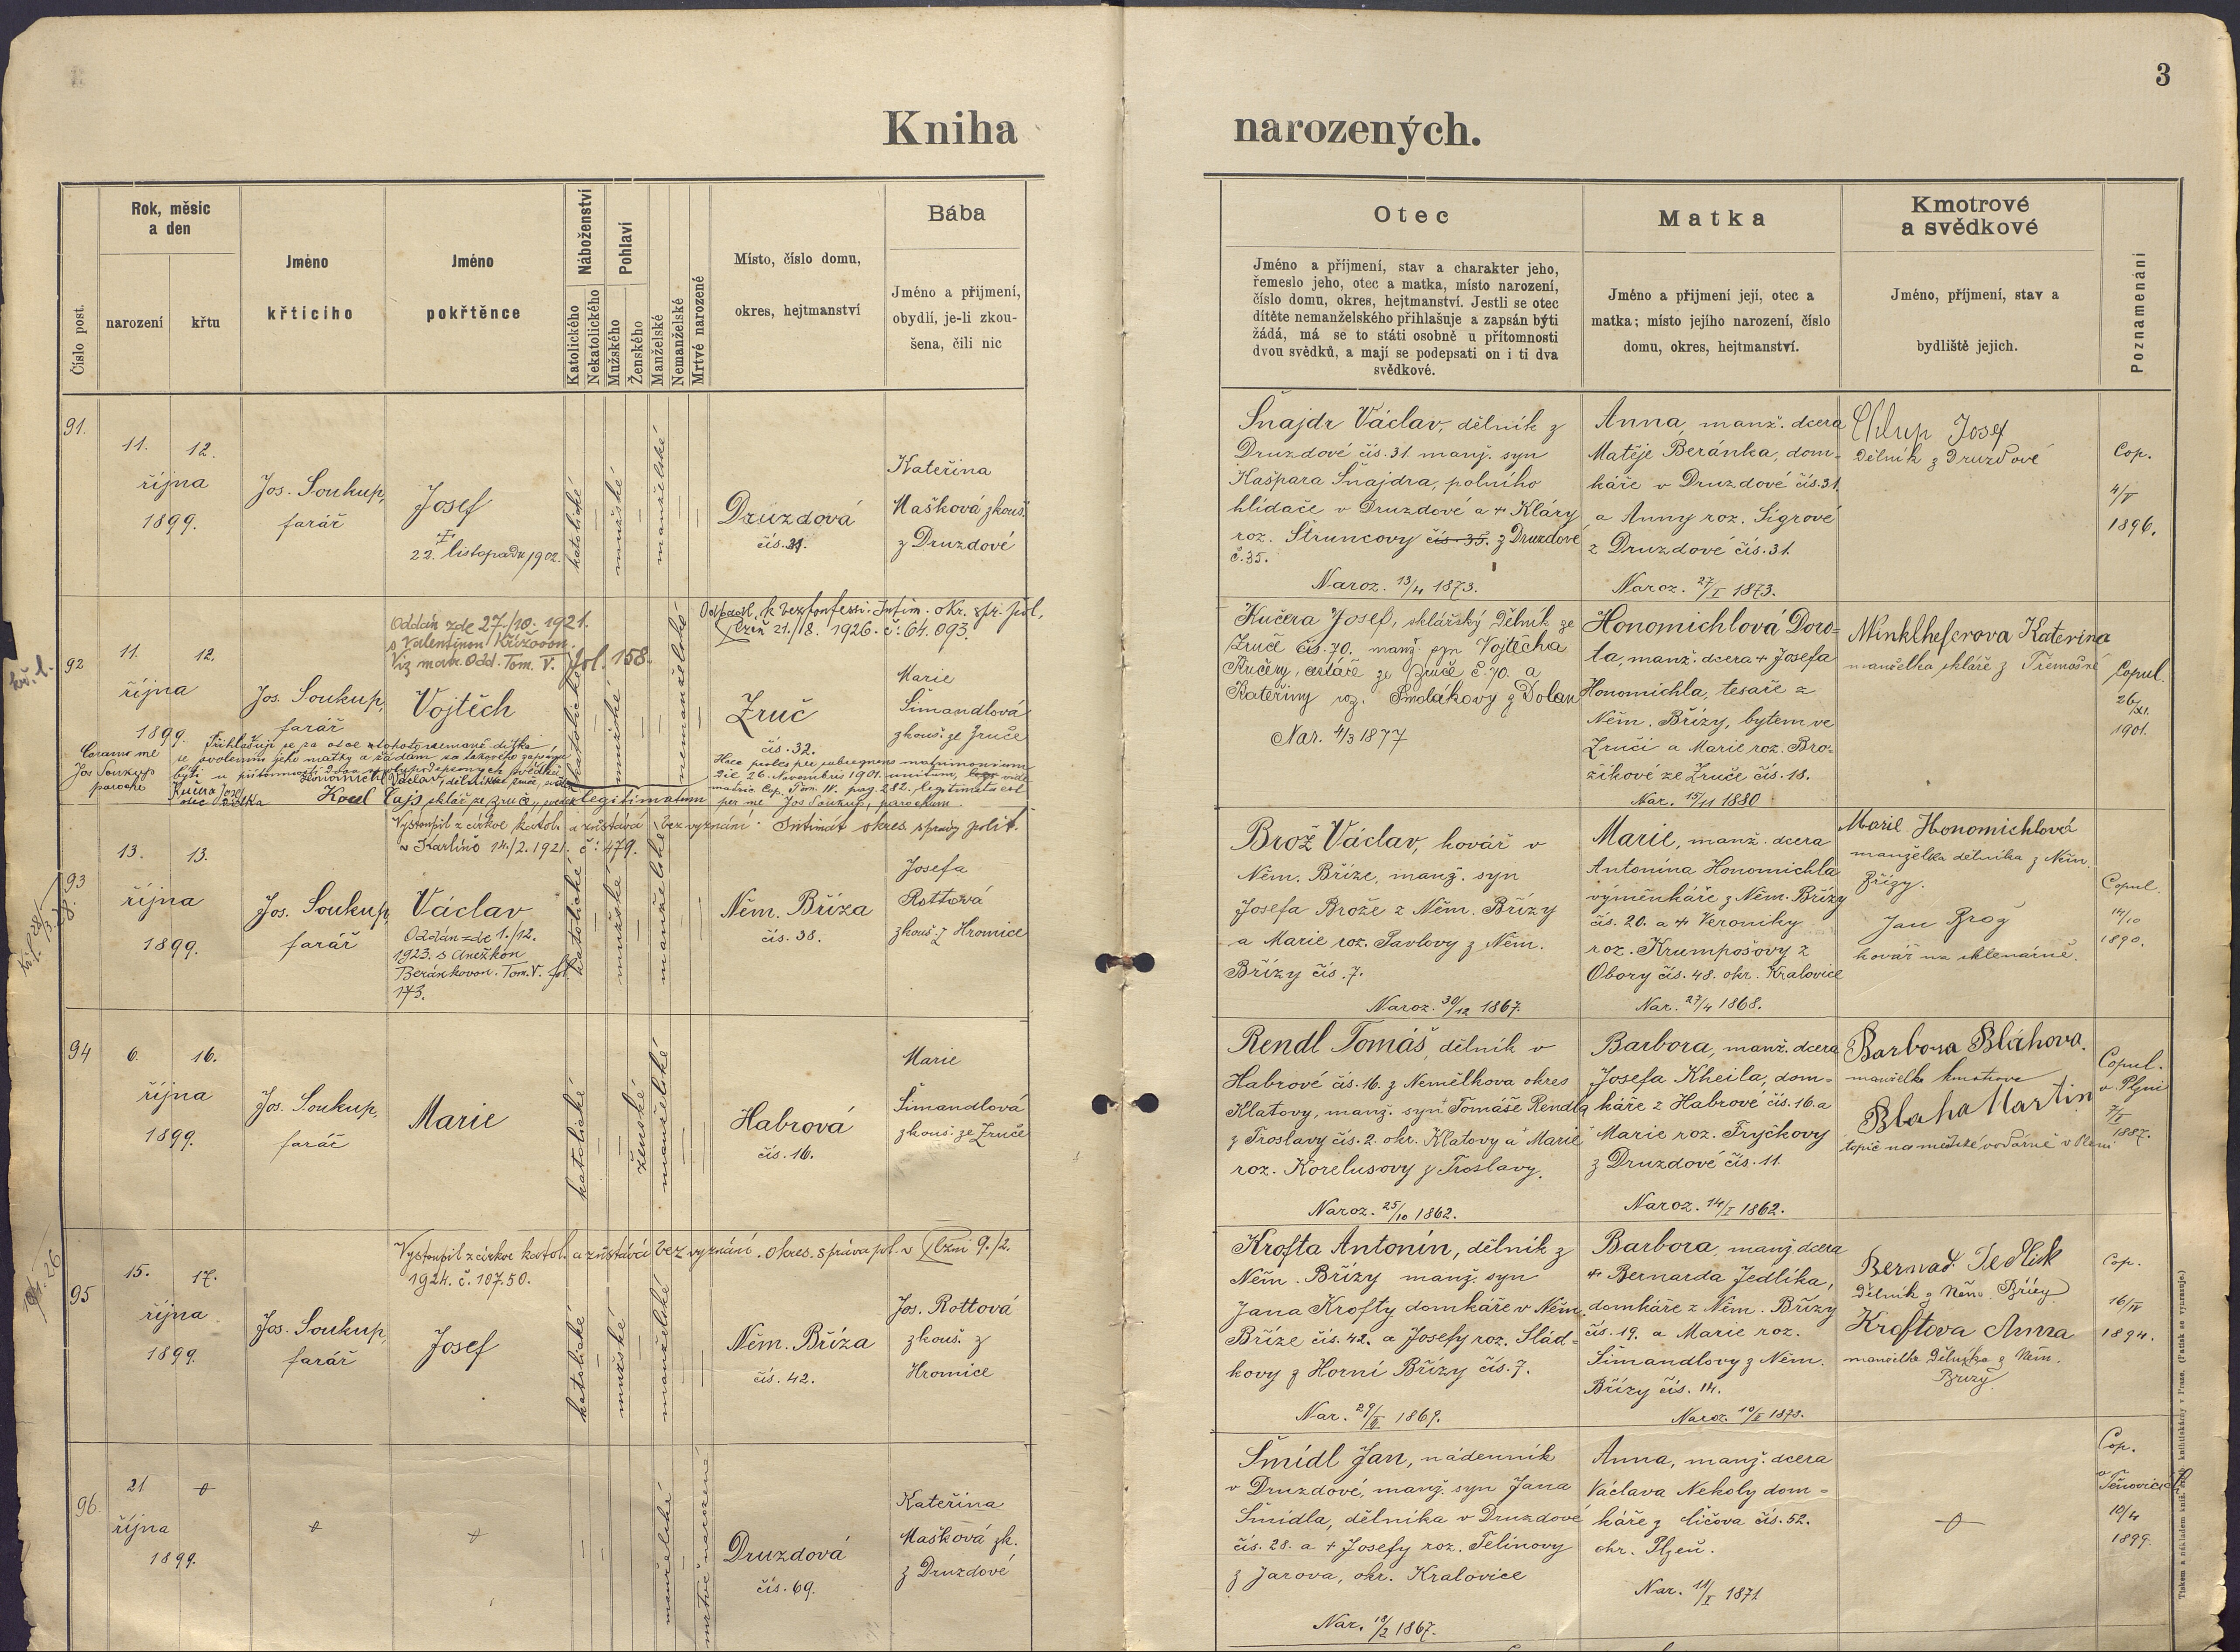 3
Kniha narozených.
Číslo post.
Rok, měsíc
a den
narození
křtu
Jméno
křticího
Jméno
pokřtěnce
Náboženství
Katolického
Nekatolického
Pohlaví
Mužského
Ženského
Manželské
Nemanželské
Mrtvé narozené
Místo, číslo domu,
okres, hejtmanství
Bába
Jméno a přijmení,
obydlí, je-li zkou-
šena, čili nic
Otec
Jméno a příjmení, stav a charakter jeho,
řemeslo jeho, otec a matka, místo narození,
číslo domu, okres, hejtmanství. Jestli se otec
dítěte nemanželského přihlašuje a zapsán býti
žádá, má se to státi osobně u přítomnosti
dvou svědků, a mají se podepsati on i ti dva
svědkové.
Matka
Jméno a přijmení její, otec a
matka; místo jejího narození, číslo
domu, okres, hejtmanství.
Kmotrové
a svědkové
Jméno, příjmení, stav a
bydliště jejich.
Poznamenání
91.
11. 12.
října
1899.
Jos. Soukup,
farář
Josef
22. listopadu 1902.
katolické
mužské
manželské
Druzdová
čís. 31.
Kateřina
Mašková zkouš.
z Druzdové
Šnajdr Václav, dělník z
Druzdové čís. 31. manž. syn
Kašpara Šnajdra, polního
hlídače v Druzdové a + Kláry
roz. Štruncovy čís. 35. z Druzdové
č. 35.
Naroz. 13/4 1873.
Anna, manž. dcera
Matěje Beránka, dom-
káře v Druzdové čís. 31.
a Anny roz. Sigrové
z Druzdové čís. 31.
Naroz. 27/I 1873.
Chlup Josef
Dělník z Druzdové
Cop.
4/V
1896.
92
11. 12.
října
1899.
Jos. Soukup,
farář
Oddán zde 27./10. 1921.
s Valentinou Křížovou.
Viz matr. Odd. Tom. V. fol. 158.
Vojtěch
katolické
mužské
nemanželské
Odpadl k bezkonfessi. Intim. okr. spr. pol.
Plzeň 21./8. 1926. č: 64.093.
Zruč
čís. 32.
Marie
Šimandlová
zkouš. ze Zruče
Přihlašuji se za otce tohoto nemanž. dítka
se svolením jeho matky a žádám za takového zapsán
býti u přítomnosti dvou spolupodepsaných svědků.
Coram me
Jos Soukup
parocho
Kučera Josef
otec dítka
Honomichl Václav, dělník ze Zruče, svědek
Karel Cajs sklář ze Zruče, svědek
Haec proles per subsequens matrimonium
die 26. Novembris 1901. unitum, vide
matric. Cop. Tom. IV. pag. 282. legitimata est
legitimatum
per me Jos Soukup, parochum.
Kučera Josef, sklářský Dělník ze
Zruče čís. 70. manž. syn Vojtěcha
Kučery, cestáře ze Zruče č. 70. a
Kateřiny roz. Smolákovy z Dolan
Nar. 4/3 1877
Honomichlová Doro-
ta, manž. dcera + Josefa
Honomichla, tesaře z
Něm. Břízy, bytem ve
Zruči a Marie roz. Bro-
žíkové ze Zruče čís. 18.
Nar. 15/11 1880
Minklheferova Katerina
manželka skláře z Třemošné
Copul.
26/XI.
1901.
93
13. 13.
října
1899.
Jos. Soukup,
farář
Vystoupil z církve katol. a zůstává bez vyznání. Intimát okres. správy polit.
v Karlíně 14./2. 1921. č: 479.
Václav
Oddán zde 1./12.
1923. s Anežkou
Beránkovou. Tom. V. fol.
173.
katolické
mužské
manželské
Něm. Bříza
čís. 38.
Josefa
Rottová
zkouš. z Hromice
Brož Václav, kovář v
Něm. Bříze, manž. syn
Josefa Brože z Něm. Břízy
a Marie roz. Pavlovy z Něm.
Břízy čís. 7.
Naroz. 30/12 1867.
Marie, manž. dcera
Antonína Honomichla
výměnkáře z Něm. Břízy
čís. 20. a + Veroniky
roz. Krumpošovy z
Obory čís. 48. okr. Kralovice
Nar. 27/4 1868.
Marie Honomichlová
manželka dělníka z Něm.
Břízy.
Jan Brož
kovář na sklenárně.
Copul.
14/10
1890.
94
6. 16.
října
1899.
Jos. Soukup,
farář
Marie
katolické
ženské
manželské
Habrová
čís. 16.
Marie
Šimandlová
zkouš. ze Zruče
Rendl Tomáš, dělník v
Habrové čís. 16. z Nemělkova okres
Klatovy, manž. syn Tomáše Rendla
z Troslavy čís. 2. okr. Klatovy a Marie
roz. Korelusovy z Troslavy.
Naroz. 25/10 1862.
Barbora, manž. dcera
Josefa Kheila, dom-
káře z Habrové čís. 16. a
Marie roz. Fryčkovy
z Druzdové čís. 11.
Naroz. 14/I 1862.
Barbora Bláhova.
manželka kmotrova
Blaha Martin
topič na městské vodárně v Plzni
Copul.
v Plzni
7/V
1887.
95
15. 17.
října
1899.
Jos. Soukup,
farář
Vystoupil z církve katol. a zůstává bez vyznání. okres. správa pol. v Plzni 9./2.
1924. č. 107.50.
Josef
katolické
mužské
manželské
Něm. Bříza
čís. 42.
Jos. Rottová
zkouš. z
Hromice
Krofta Antonín, dělník z
Něm. Břízy manž. syn
Jana Krofty domkáře v Něm.
Bříze čís. 42. a Josefy roz. Slád-
kovy z Horní Břízy čís. 7.
Nar. 29/V 1869.
Barbora, manž. dcera
+ Bernarda Jedlíka,
domkáře z Něm. Břízy
čís. 19. a Marie roz.
Šimandlovy z Něm.
Břízy čís. 14.
Naroz. 10/II 1873.
Bernad. Jedlik
Dělník z Něm. Břízy
Kroftova Anna
manželka Dělníka z Něm.
Břízy
Cop.
16/IV
1894.
96.
21
října
1899.
manželské
mrtvě narozené
Druzdová
čís. 69.
Kateřina
Mašková zk.
z Druzdové
Šmídl Jan, nádenník
v Druzdové, manž. syn Jana
Šmídla, dělníka v Druzdové
čís. 28. a + Josefy roz. Telínovy
z Jarova, okr. Kralovice
Nar. 18/2 1867.
Anna, manž. dcera
Václava Nekoly dom-
káře z Ličova čís. 52.
okr. Plzeň.
Nar. 11/I 1871
Cop.
v
Těnovicích
10/4
1899.